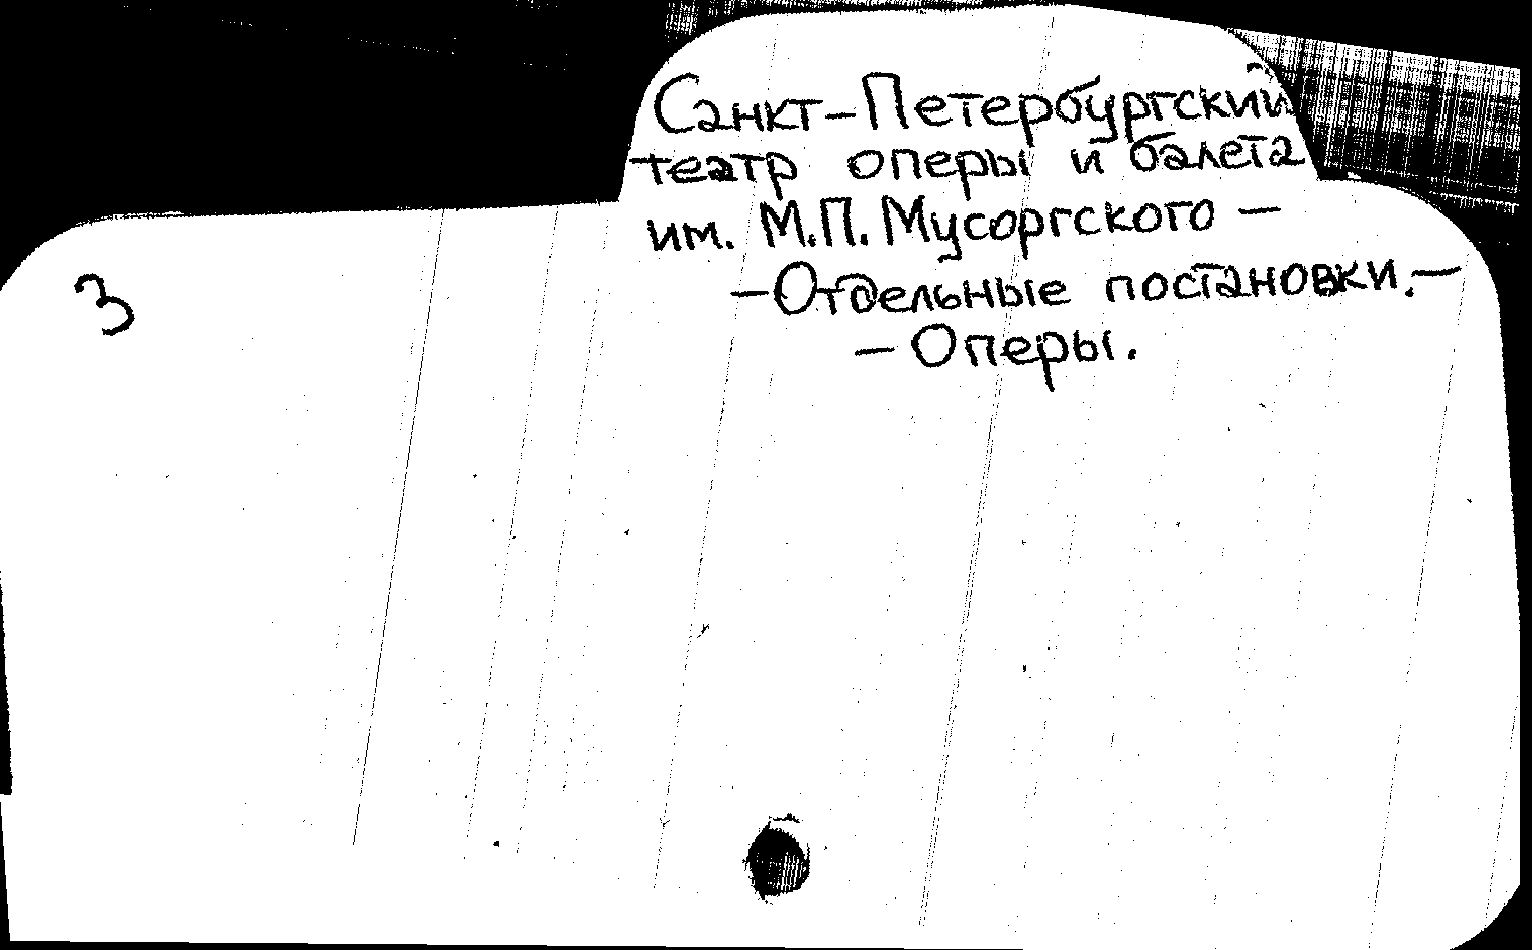 Санкт-Петербургский
театр оперы и балета
им. М.П. Мусоргского —
— Отдельные постановки. —
— Оперы.
3